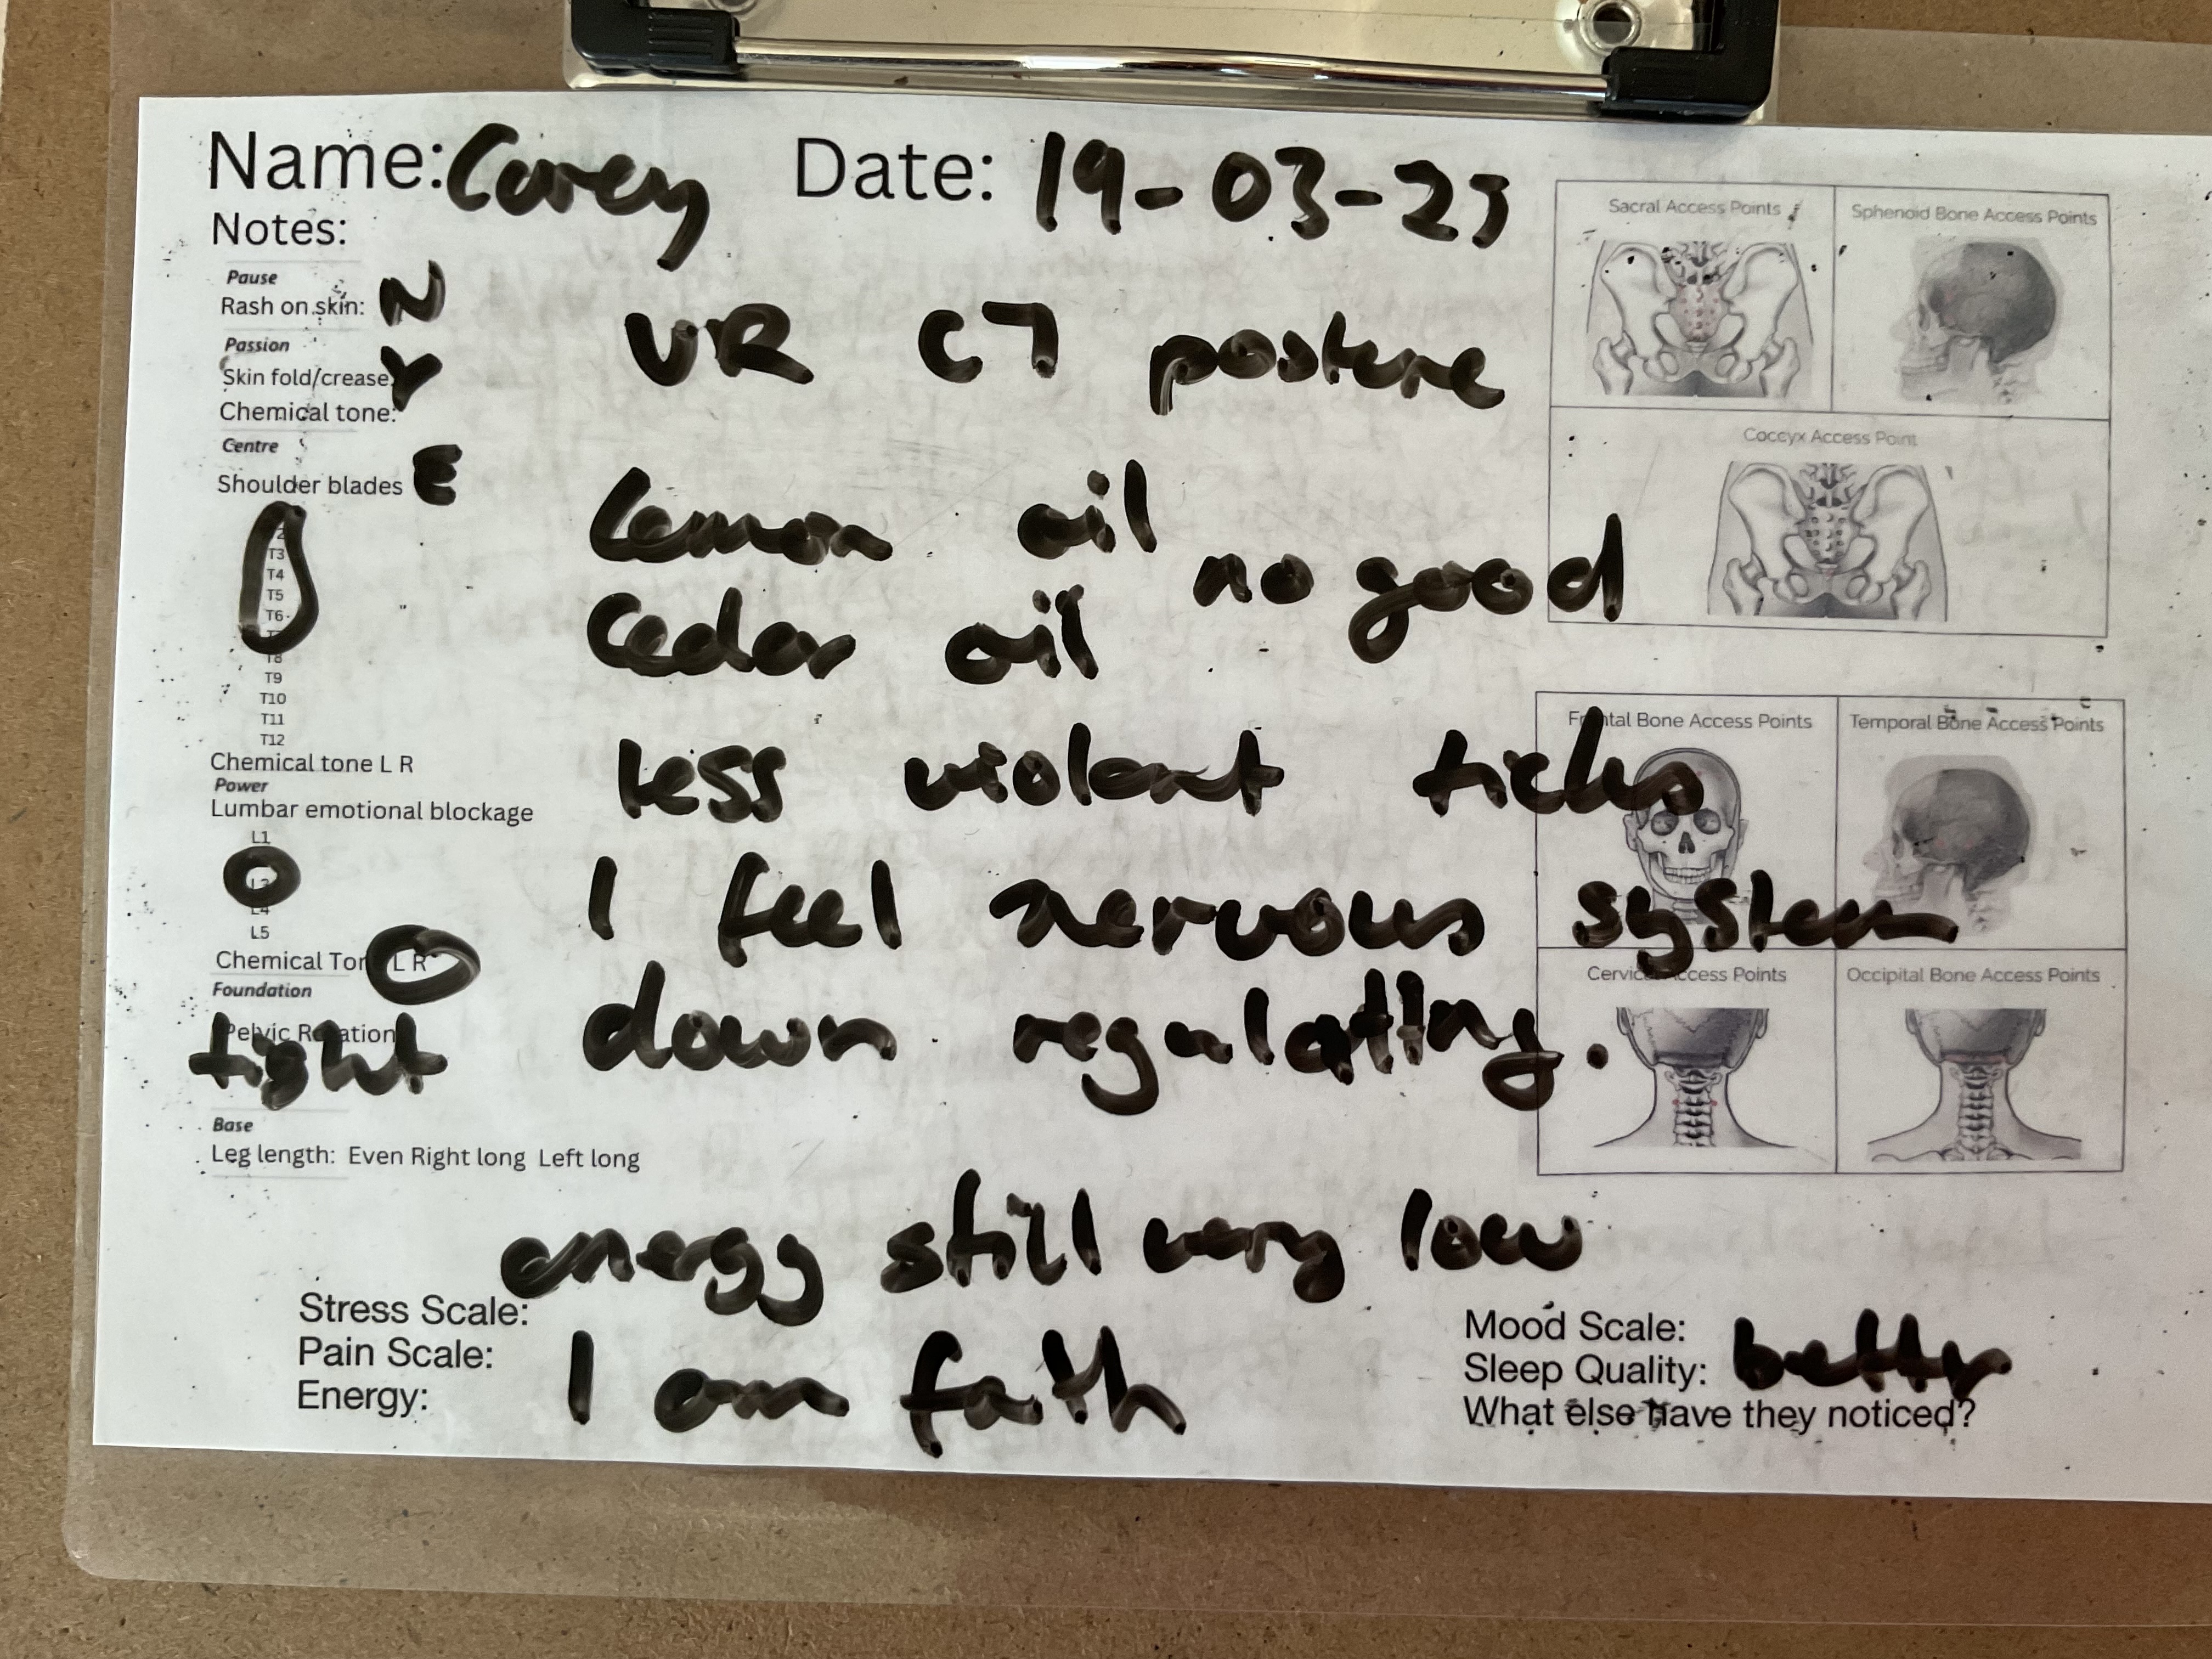 Name: Corey Date: 19-03-25
Notes:
Pause
Rash on skin: N
VR C7 posture
Passion
Skin fold/crease: Y
Chemical tone:
Centre
Shoulder blades E
Lemon oil
no good
Cedar oil
T3
T4
T5
T6
T8
T9
T10
T11
T12
less violent ticks
Chemical tone L R
Power
Lumbar emotional blockage
L1
L4
L5
I feel nervous system
Chemical Tone L R
Foundation
down regulating.
Pelvic Rotation
tight
Base
Leg length: Even Right long Left long
energy still very low
Stress Scale:
Pain Scale:
Energy:
I am faith
Mood Scale:
Sleep Quality: better
What else have they noticed?
Sacral Access Points
Sphenoid Bone Access Points
Coccyx Access Point
Frontal Bone Access Points
Temporal Bone Access Points
Cervical Access Points
Occipital Bone Access Points